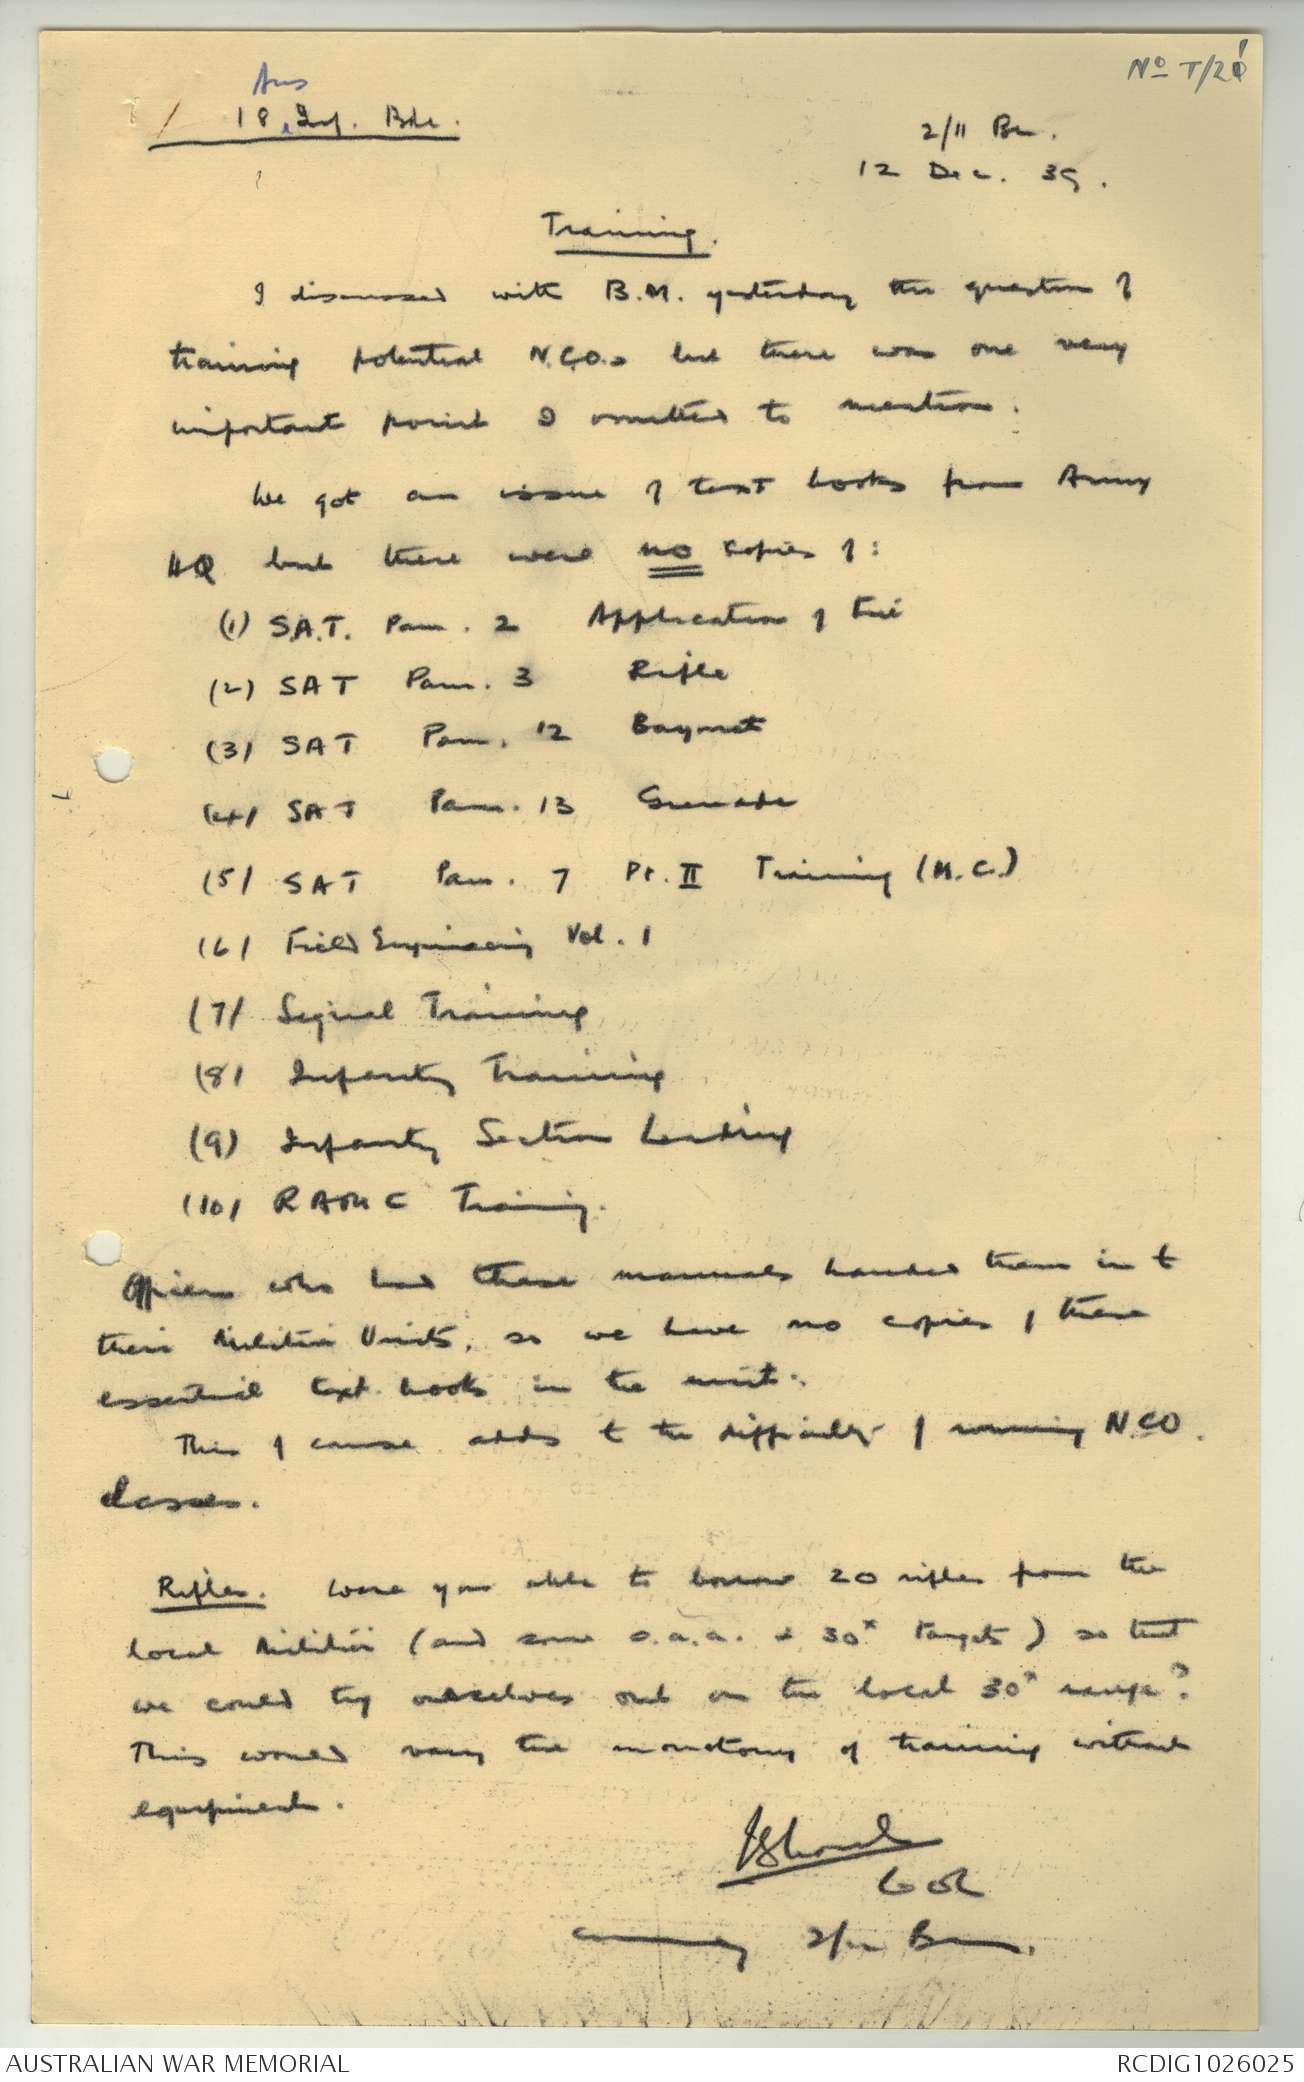 No T/21
Aus
18 Inf. Bde.
2/11 Bn.
12 Dec. 39.
Training.
I discussed with B.M. yesterday the question of
training potential N.C.O.s but there was one very
important point I omitted to mention.
We got an issue of text books from Army
HQ but there were no copies of:
(1) S.A.T. Pam. 2 Application of Fire
(2) SAT Pam. 3 Rifle
(3) SAT Pam. 12 Bayonet
(4) SAT Pam. 13 Grenade
(5) SAT Pam. 7 Pt. II Training (M.C.)
(6) Field Engineering Vol. 1
(7) Signal Training
(8) Infantry Training
(9) Infantry Section Leading
(10) RAMC Training.
Officers who had these manuals handed them in to
their Militia Units, so we have no copies of these
essential text books in the unit.
This of course adds to the difficulty of running N.C.O.
classes.
Rifles. Were you able to borrow 20 rifles from the
local Militia (and some s.a.a. & 30x targets) so that
we could try ourselves out on the local 30x range?
This would vary the monotony of training without
equipment.
Lt Col
Commanding 2/11 Bn.
AUSTRALIAN WAR MEMORIAL
RCDIG1026025